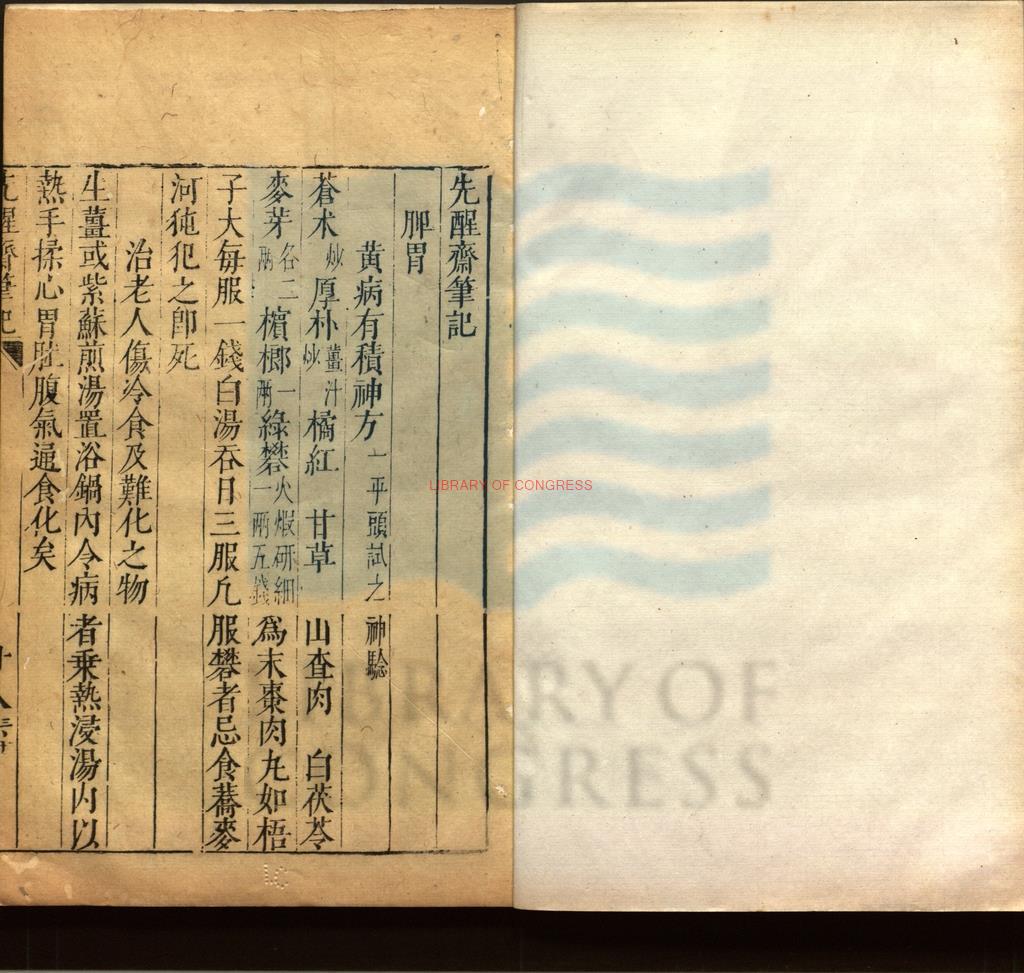 先醒齋筆記
脾胃
黃病有積神方 一平頭試之神驗
蒼术 炒 厚朴 薑汁炒 橘紅 甘草 山查肉 白茯苓
麥芽 各二兩 檳榔 一兩 綠礬 火煅研細一兩五錢 爲末棗肉丸如梧
子大每服一錢白湯吞日三服凢服礬者忌食蕎麥
河㹠犯之卽死
治老人傷冷食及難化之物
生薑或紫蘇煎湯置浴鍋內令病者乗熱浸湯内以
熱手揉心胃肚腹氣通食化矣
先醒齋筆記
十八
LIBRARY OF CONGRESS
LIBRARY OF
CONGRESS